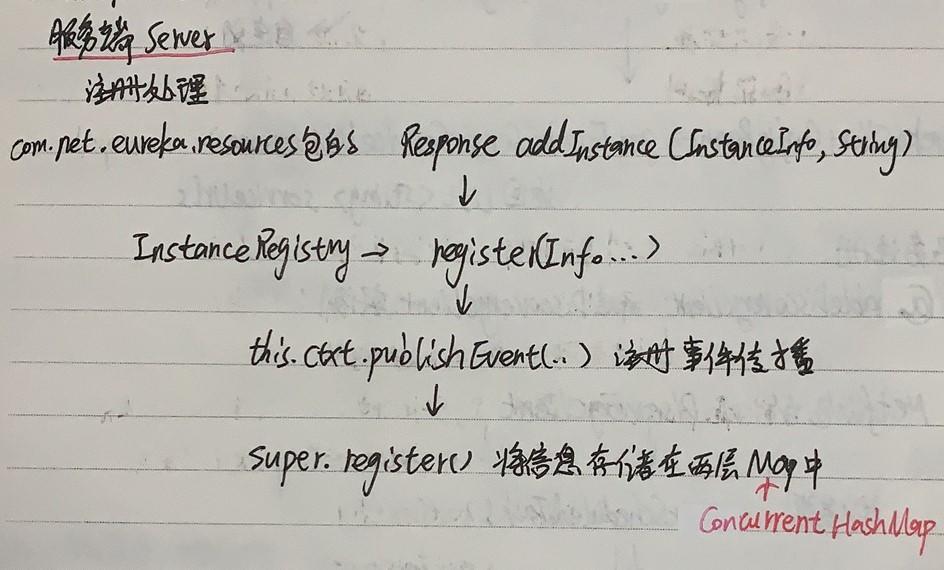 服务端 Server
注册处理
com.net.eureka.resources包的 Response addInstance (InstanceInfo, String)
↓
InstanceRegistry → register(Info...)
↓
this.ctxt.publishEvent(..) 注册事件传播
↓
super.register() 将信息存储在两层Map中
↑
ConcurrentHashMap